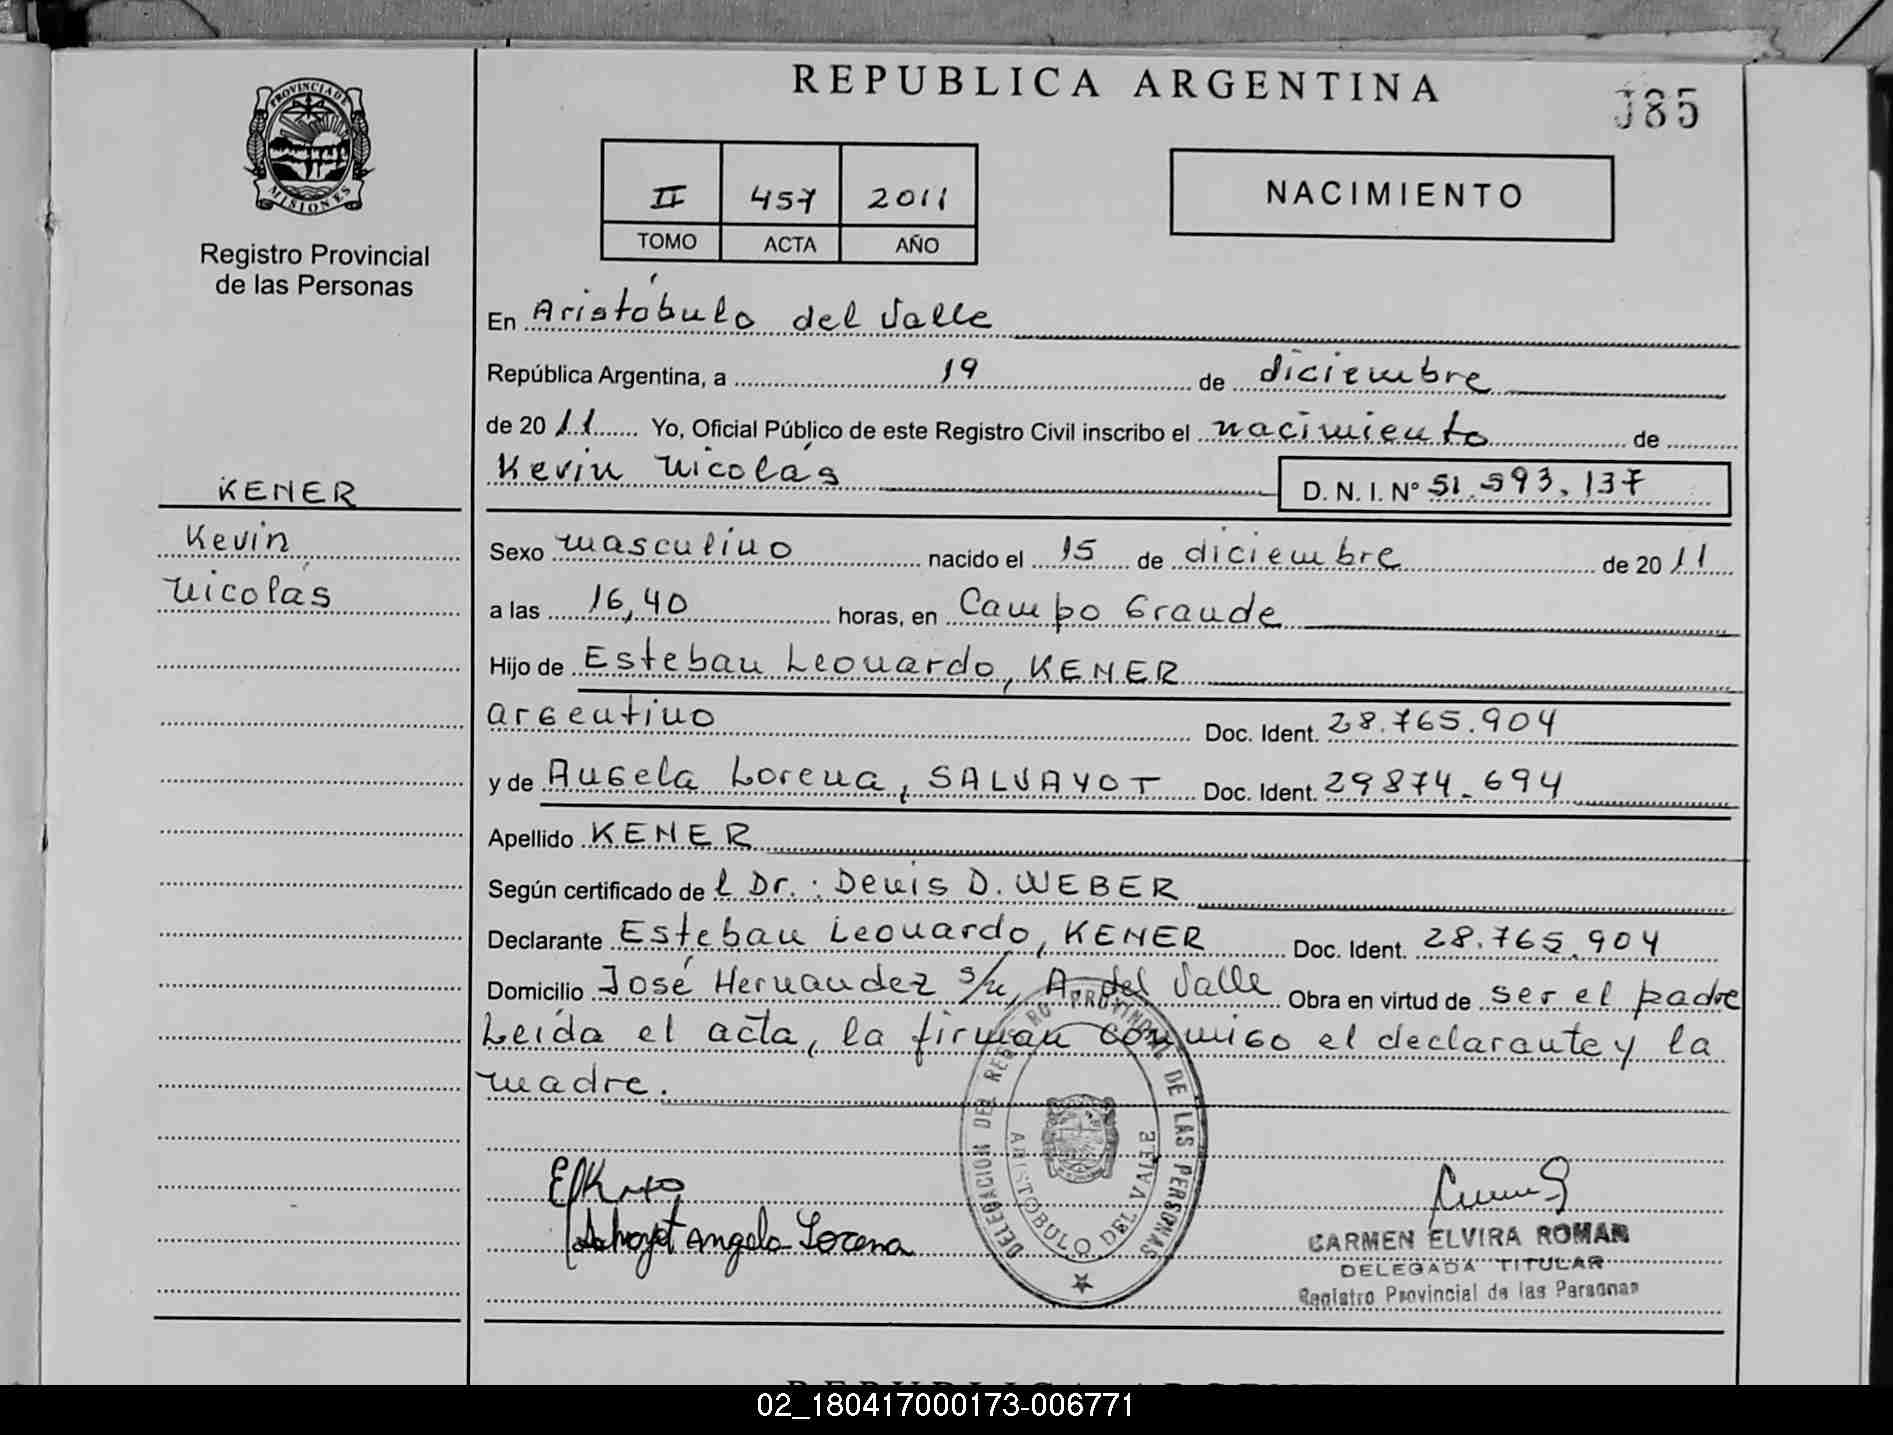 PROVINCIA DE
MISIONES
Registro Provincial
de las Personas
KENER
Kevin
Nicolás
REPUBLICA ARGENTINA
385
II 457 2011
TOMO ACTA AÑO
NACIMIENTO
En Aristóbulo del Valle
República Argentina, a 19 de diciembre
de 2011 Yo, Oficial Público de este Registro Civil inscribo el nacimiento de
Kevin Nicolás D. N. I. Nº 51.593.137
Sexo masculino nacido el 15 de diciembre de 2011
a las 16,40 horas, en Campo Grande
Hijo de Esteban Leonardo, KENER
argentino Doc. Ident. 28.765.904
y de Angela Lorena, SALVAYOT Doc. Ident. 29874.694
Apellido KENER
Según certificado del Dr.: Denis D. WEBER
Declarante Esteban Leonardo, KENER Doc. Ident. 28.765.904
Domicilio José Hernandez s/n, A. del Valle Obra en virtud de ser el padre
Leída el acta, la firman conmigo el declarante y la
madre.
DELEGACION DEL REGISTRO PROVINCIAL DE LAS PERSONAS
ARISTOBULO DEL VALLE
Salvayot Angela Lorena
CARMEN ELVIRA ROMAN
DELEGADA TITULAR
Registro Provincial de las Personas
REPUBLICA ARGENTINA
02_180417000173-006771